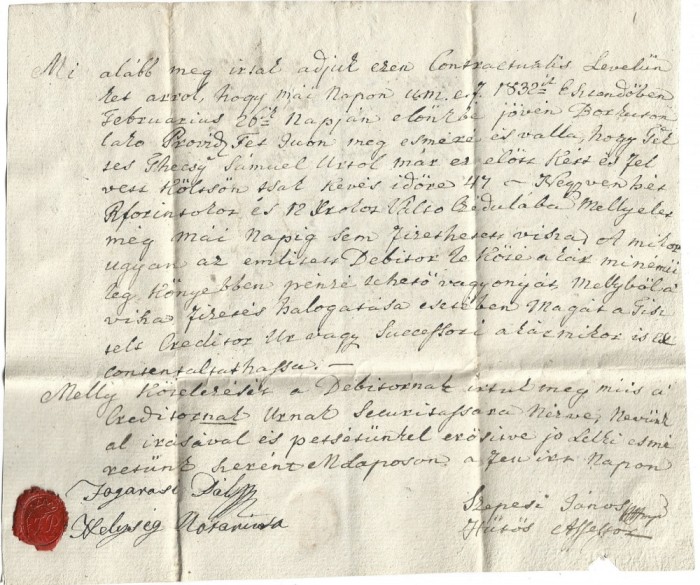 Mi alább meg irtak adjuk ezen Contractualis Levelün
ket arrol, hogy mái Napon u.m. e. f. 1832ik Esztendőben
Februarius 26ik Napján előnkbe jövén Borkuton
lako Fet Juon meg esméré és vallá, hogy Tek
tes Sámuel Urtol már ez előtt Kért és fel
vett költsön tsak kevés időre 47 – Negyvenhét
Rforintokot és 12 Xrokot Válto Czédulába Mellyeket
még mái Napig sem fizethetett viszsza, A mikor
ugyan az emlitett Debitor le köté akár minémü
leg könyebben pénzé tehető vagyonyát, mellyből a
viszsza fizetés halogatása esetében Magát a Tisz
telt Creditor Ur vagy Successori akármikor is
contentáltathassa. –
Melly Kötelezését a Debitornak irtuk meg mü is a
Creditornak Urnak Securitassára Nézve, Nevünk
al irásával és petsétünkel erősitve jo Lelki esmé
retünk szerént Mlaposon a fen irt Napon
Fogarasi Pál
Helység Notariussa
Szepesi János
Hütös Assessor